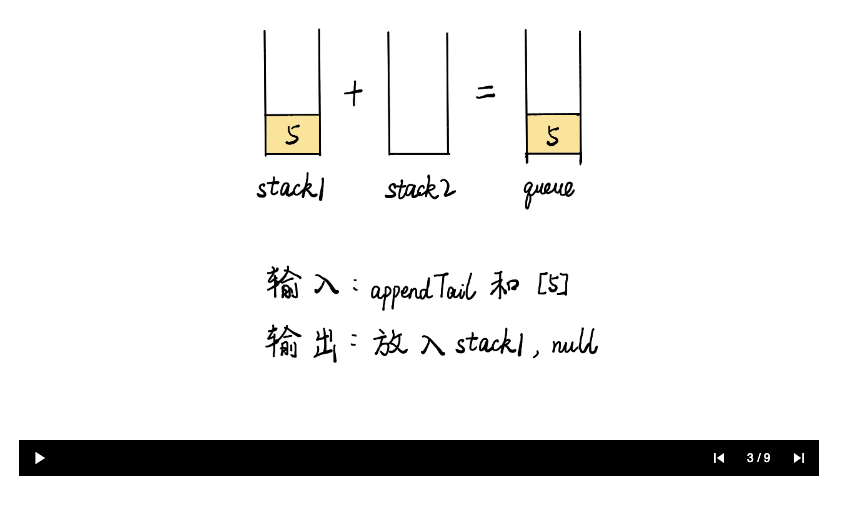 5 + = 5
stack1 stack2 queue
输入：appendTail 和 [5]
输出：放入stack1, null
3 / 9